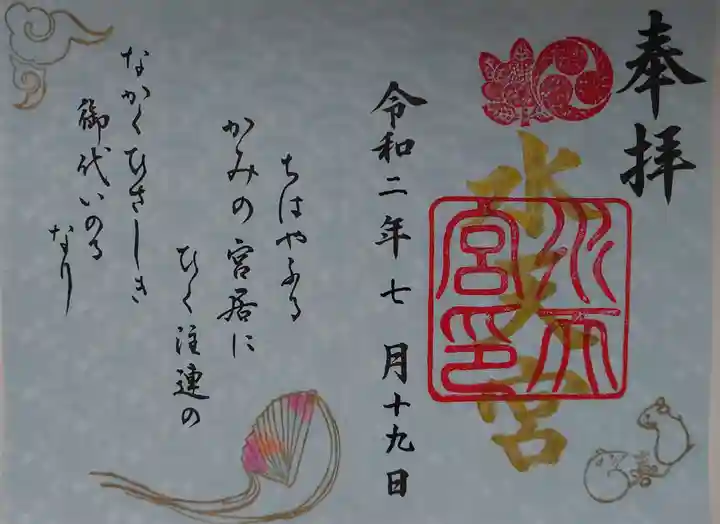 奉拝
水天宮
水天宮印
令和二年七月十九日
ちはやふる
かみの宮居に
ひく注連の
なかくひさしき
御代いのる
なり